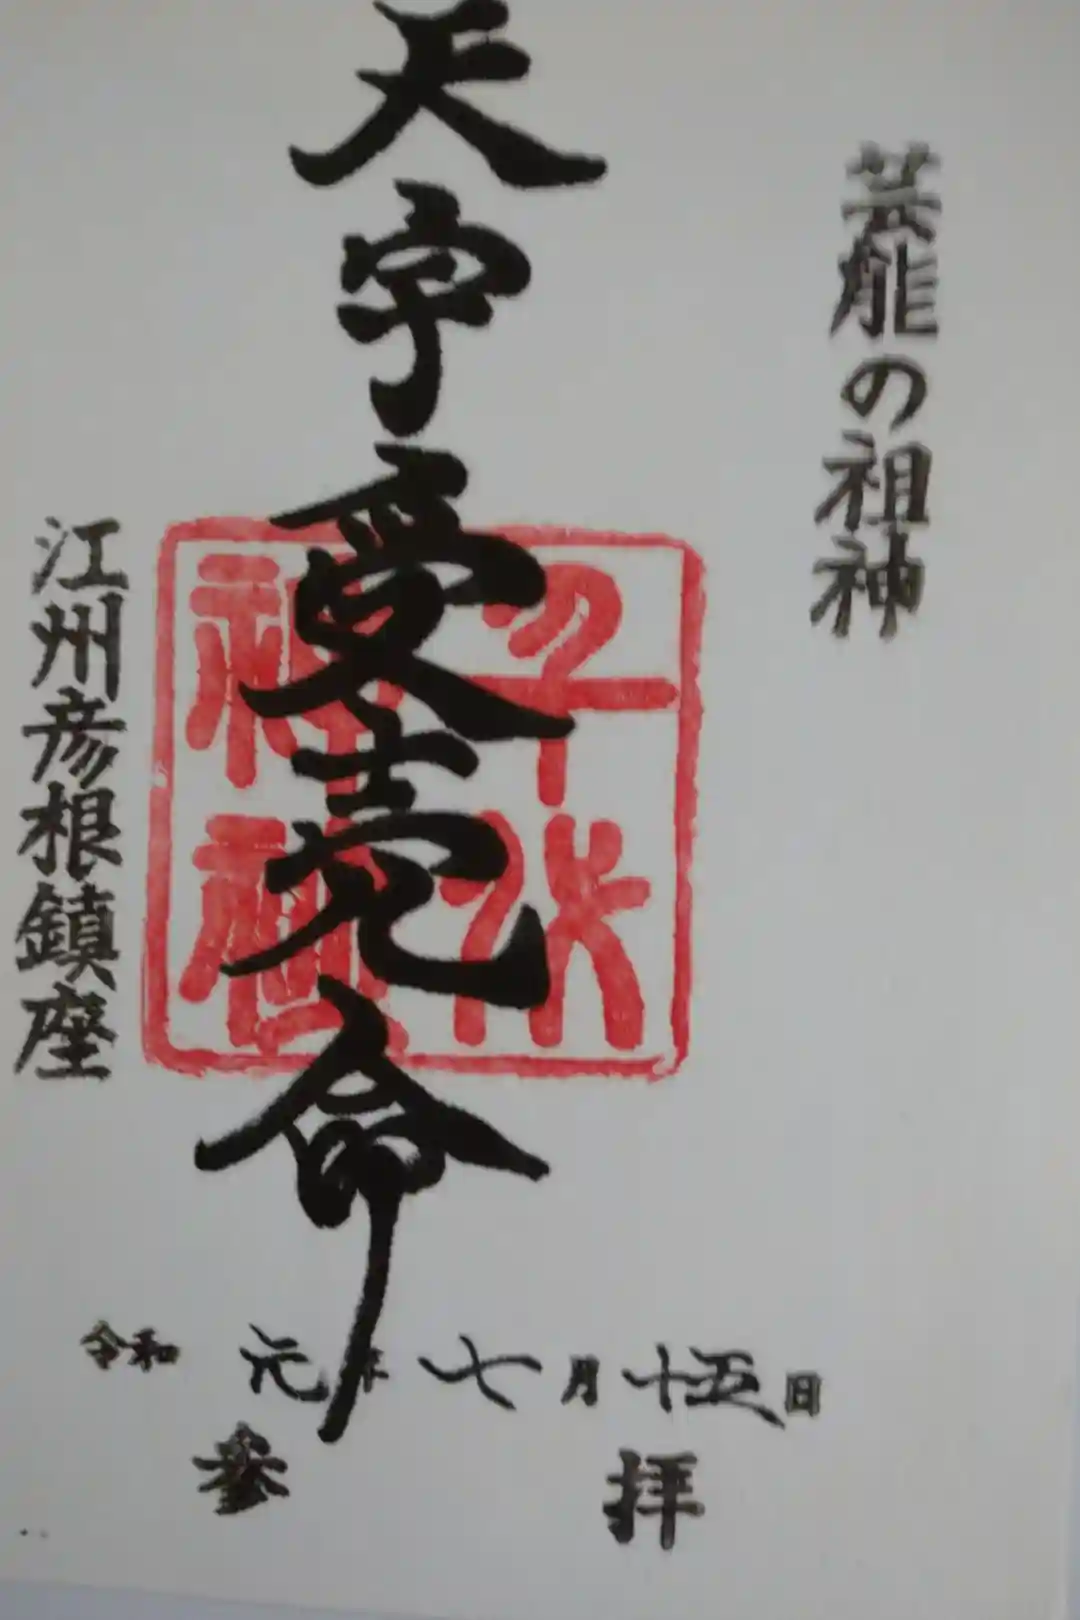 芸能の祖神
天宇受売命
千代
神社
江州彦根鎮座
令和 元年 七月 十五日
参 拝